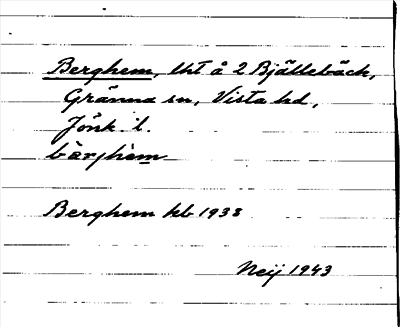 Berghem, lht å 2 Bjällebäck,
Gränna sn, Vista hd,
Jönk. l.
bärjhem
Berghem kb 1938
Neij 1943